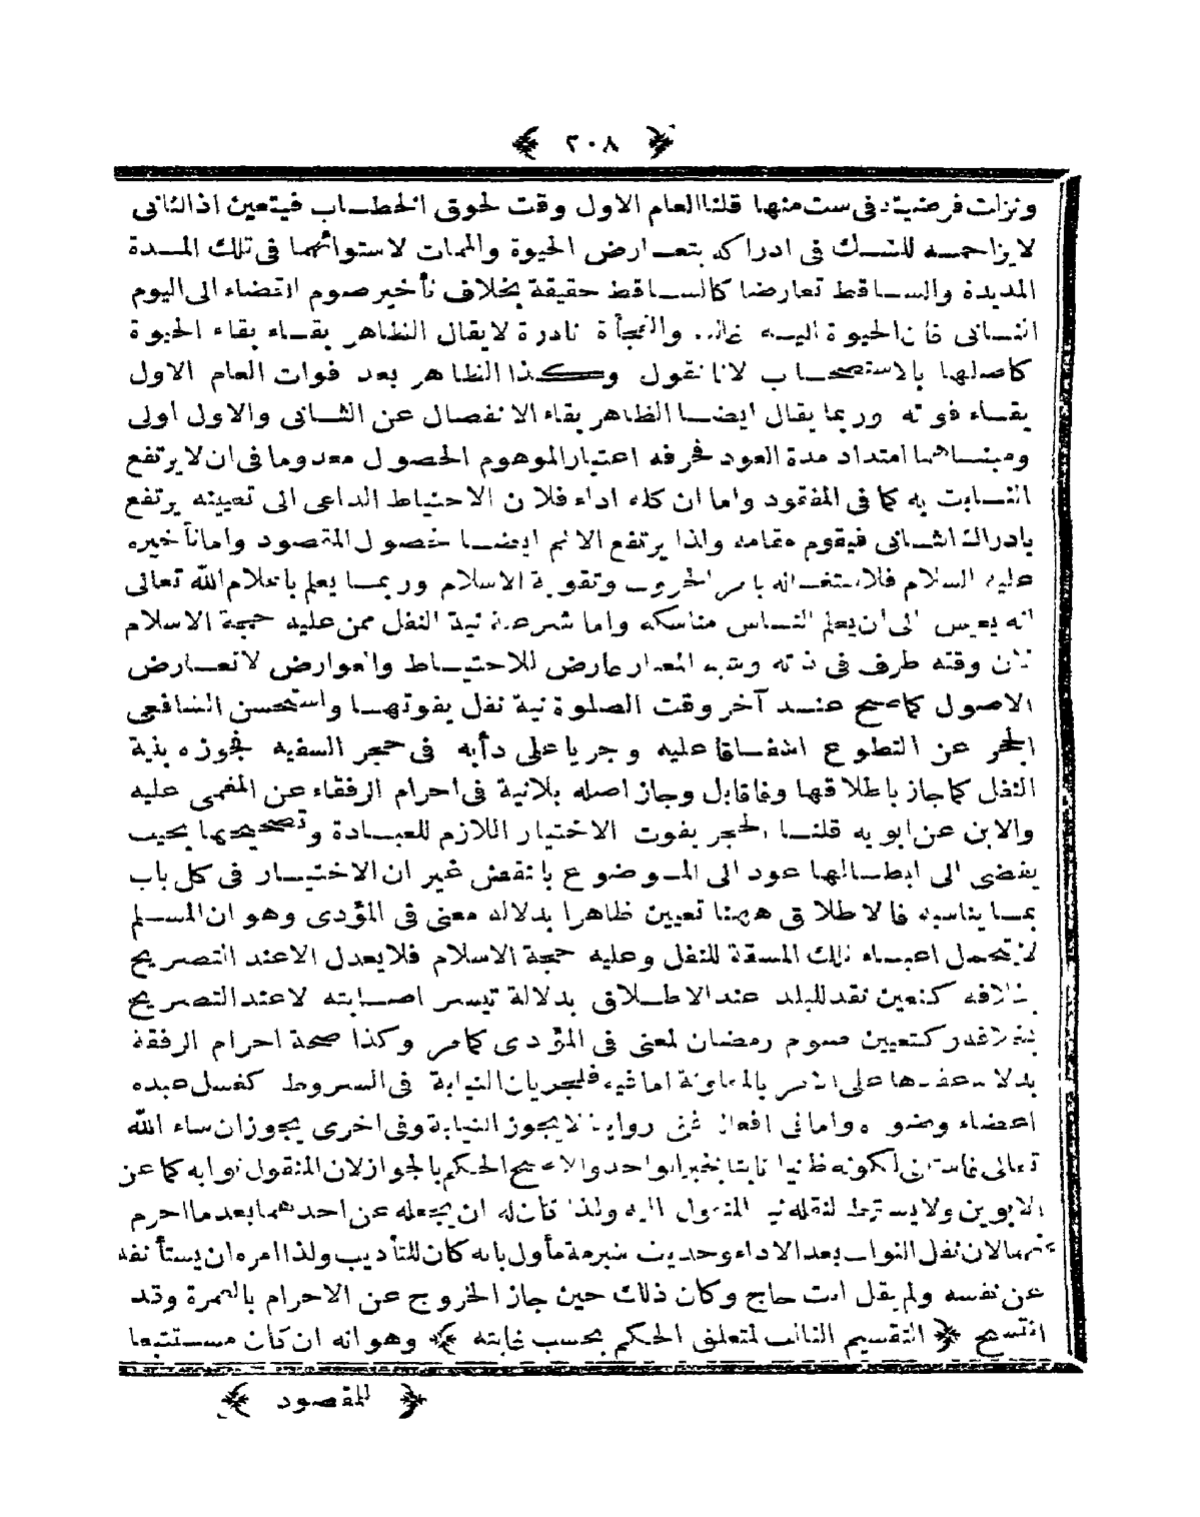 ﴿ ٢٠٨ ﴾
ونزلت فرضيته في ست منها قلنا العام الاول وقت لحوق الخطاب فيتعين اذ الثاني
لا يزاحمه للشك في ادراكه بتعارض الحيوة والممات لاستوائهما في تلك المدة
المديدة والساقط تعارضا كالساقط حقيقة بخلاف تأخير صوم القضاء الى اليوم
الثاني فان الحيوة اليه والفجأة نادرة لا يقال الظاهر بقاء بقاء الحيوة
كاصلها بالاستصحاب لانا نقول وكذا الظاهر بعد فوات العام الاول
بقاء فوته وربما يقال ايضا الظاهر بقاء الانفصال عن الثاني والاول اولى
ومبناهما امتداد مدة العود فحرفه اعتبار الموهوم الحصول معدوما في ان لا يرتفع
الثابت به كما في المفقود واما ان كله اداء فلان الاحتياط الداعى الى تعيينه يرتفع
بادراك الثاني فيقوم مقامه ولذا يرتفع الاثم ايضا لحصول المقصود واما تأخيره
عليه السلام فلاشتغاله بامر الحروب وتقوية الاسلام وربما يعلم باعلام الله تعالى
انه يعيش الى ان يعلم الناس مناسكه واما شرعية نية النفل ممن عليه حجة الاسلام
فان وقته ظرف في ذاته وشبه المعيار عارض للاحتياط والعوارض لا تعارض
الاصول كما صح عند آخر وقت الصلوة نية نفل يفوتها واستحسن الشافعي
الحجر عن التطوع اشفاقا عليه وجريا على دأبه في حجر السفيه فجوزه بنية
النفل كما جاز باطلاقها وفاقا بل وجاز اصله بلا نية في احرام الرفقاء عن المغمى عليه
والابن عن ابويه قلنا الحجر يفوت الاختيار اللازم للعبادة وتصحيحها بحيث
يفضى الى ابطالها عود الى الموضوع بالنقض غير ان الاختيار في كل باب
بما يناسبه فالاطلاق ههنا تعيين ظاهرا بدلالة معنى في المؤدى وهو ان المسلم
لا يتحمل اعباء تلك المشقة للنفل وعليه حجة الاسلام فلا يعدل الا عند التصريح
بخلافه كتعين نقد للبلد عند الاطلاق بدلالة تيسر اصابته لا عند التصريح
بخلافه كتعيين صوم رمضان لمعنى في المؤدى كما مر وكذا صحة احرام الرفقة
بدلالة عقدها على الامر بالمعاونة اما فيه فلجريان النيابة في الشروط كغسل عبده
اعضاء وضوءه واما في افعال ففي رواية لا يجوز النيابة وفي اخرى يجوز ان شاء الله
تعالى لكونه ظنيا ثابتا بخبر الواحد والاصح الحكم بالجواز لان المنقول ثوابه كما عن
الابوين ولا يشترط لنقله نية المنقول اليه ولذا كان له ان يجعله عن احدهما بعد ما احرم
عنهما لان نفل الثواب بعد الاداء وحديث شبرمة مأول بانه كان للتأديب ولذا امره ان يستأنفه
عن نفسه ولم يقل انت حاج وكان ذلك حين جاز الخروج عن الاحرام بالعمرة وقد
انتسخ ﴿ التقسيم الثالث لمتعلق الحكم بحسب غايته ﴾ وهو انه ان كان مستتبعا
﴿ للمقصود ﴾